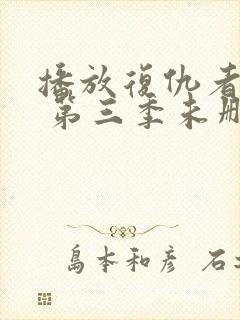 播放復仇者
第三季未刪
島本和彦 石